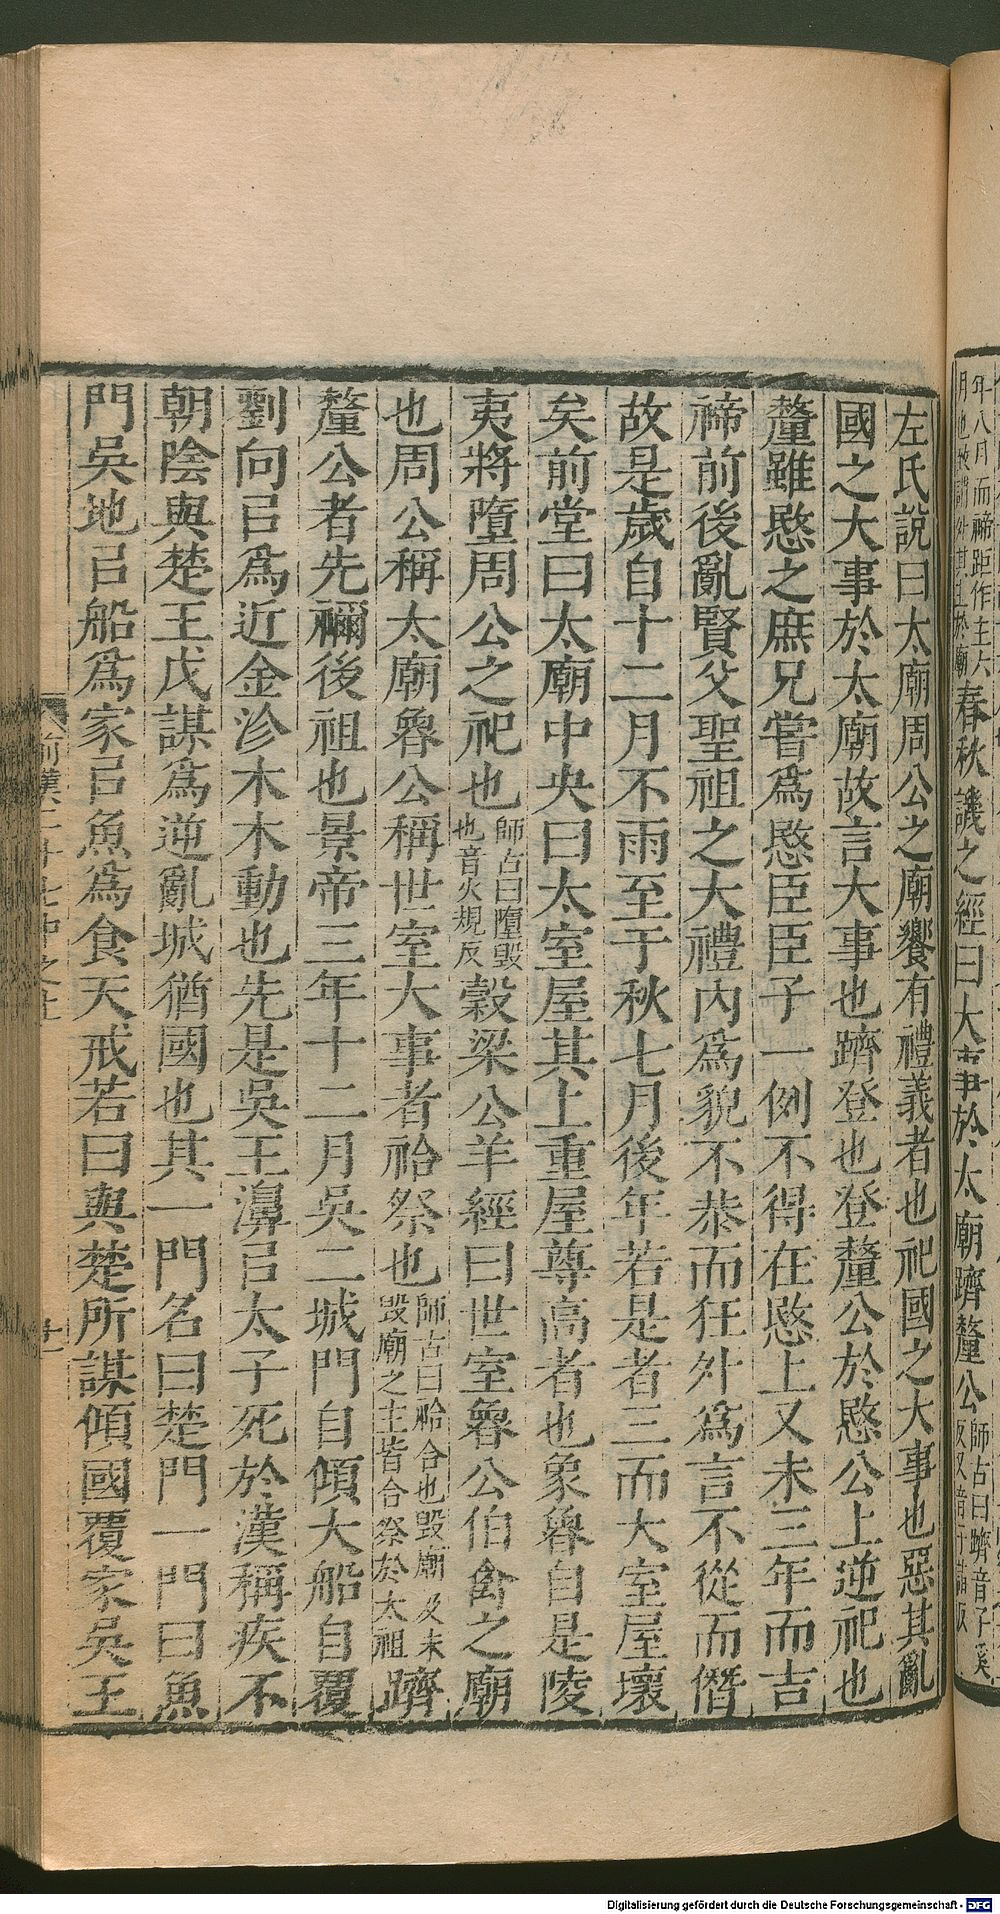 年八月而禘距作主六
月也
春秋譏之經曰大事於太廟躋釐公
師古曰躋音子奚
反又音子詣反
左氏說曰太廟周公之廟饗有禮義者也祀國之大事也惡其亂
國之大事於太廟故言大事也躋登也登釐公於愍公上逆祀也
釐雖愍之庶兄嘗爲愍臣臣子一例不得在愍上又未三年而吉
禘前後亂賢父聖祖之大禮內爲貌不恭而狂外爲言不從而僭
故是歲自十二月不雨至于秋七月後年若是者三而大室屋壞
矣前堂曰太廟中央曰太室屋其上重屋尊高者也象魯自是陵
夷將墮周公之祀也師古曰墮毀也音火規反穀梁公羊經曰世室魯公伯禽之廟
也周公稱太廟魯公稱世室大事者祫祭也師古曰祫合也毀廟及未毀廟之主皆合祭於太祖躋
釐公者先禰後祖也景帝三年十二月吳二城門自傾大船自覆
劉向㠯爲近金沴木木動也先是吳王濞㠯太子死於漢稱疾不
朝陰與楚王戊謀爲逆亂城猶國也其一門名曰楚門一門曰魚
門吳地㠯船爲家㠯魚爲食天戒若曰與楚所謀傾國覆家吳王
前漢二十七中之上
廿一
Digitalisierung gefördert durch die Deutsche Forschungsgemeinschaft - DFG